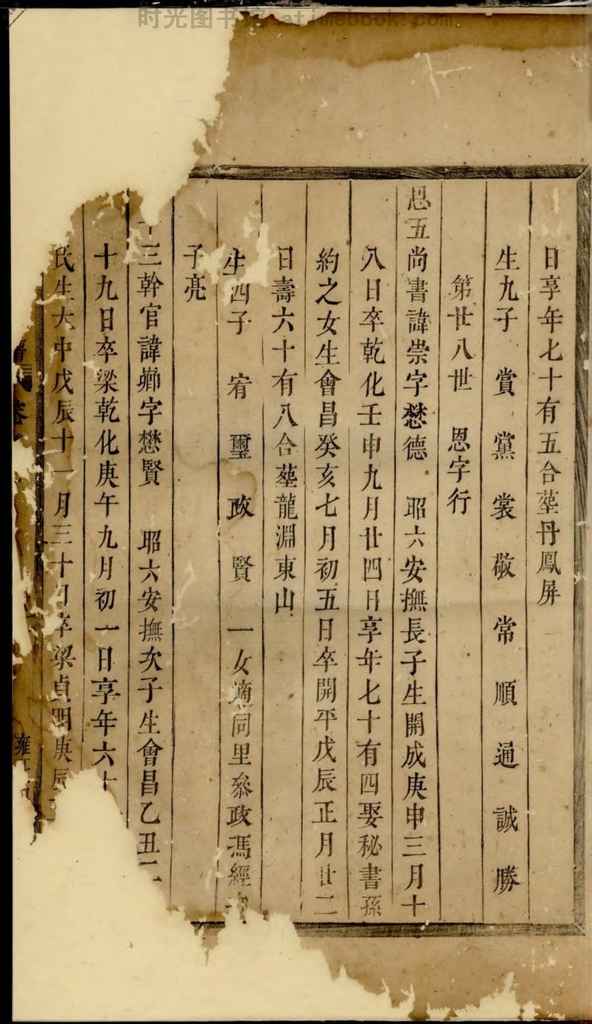 日享年七十有五合塟丹鳳屏
生九子 賞 黨 裳 敬 常 順 通 誠 勝
第廿八世 恩字行
恩五尚書諱崇字懋德 昭六安撫長子生開成庚申三月十
八日卒乾化壬申九月廿四日享年七十有四娶秘書孫
約之女生會昌癸亥七月初五日卒開平戊辰正月廿二
日壽六十有八合塟龍淵東山
生四子 宥 璽 政 賢 一女適同里叅政馮經
子亮
十三幹官諱鄉字懋賢 昭六安撫次子生會昌乙丑二
十九日卒梁乾化庚午九月初一日享年六十
氏生大中戊辰十一月三十日卒梁貞明庚辰